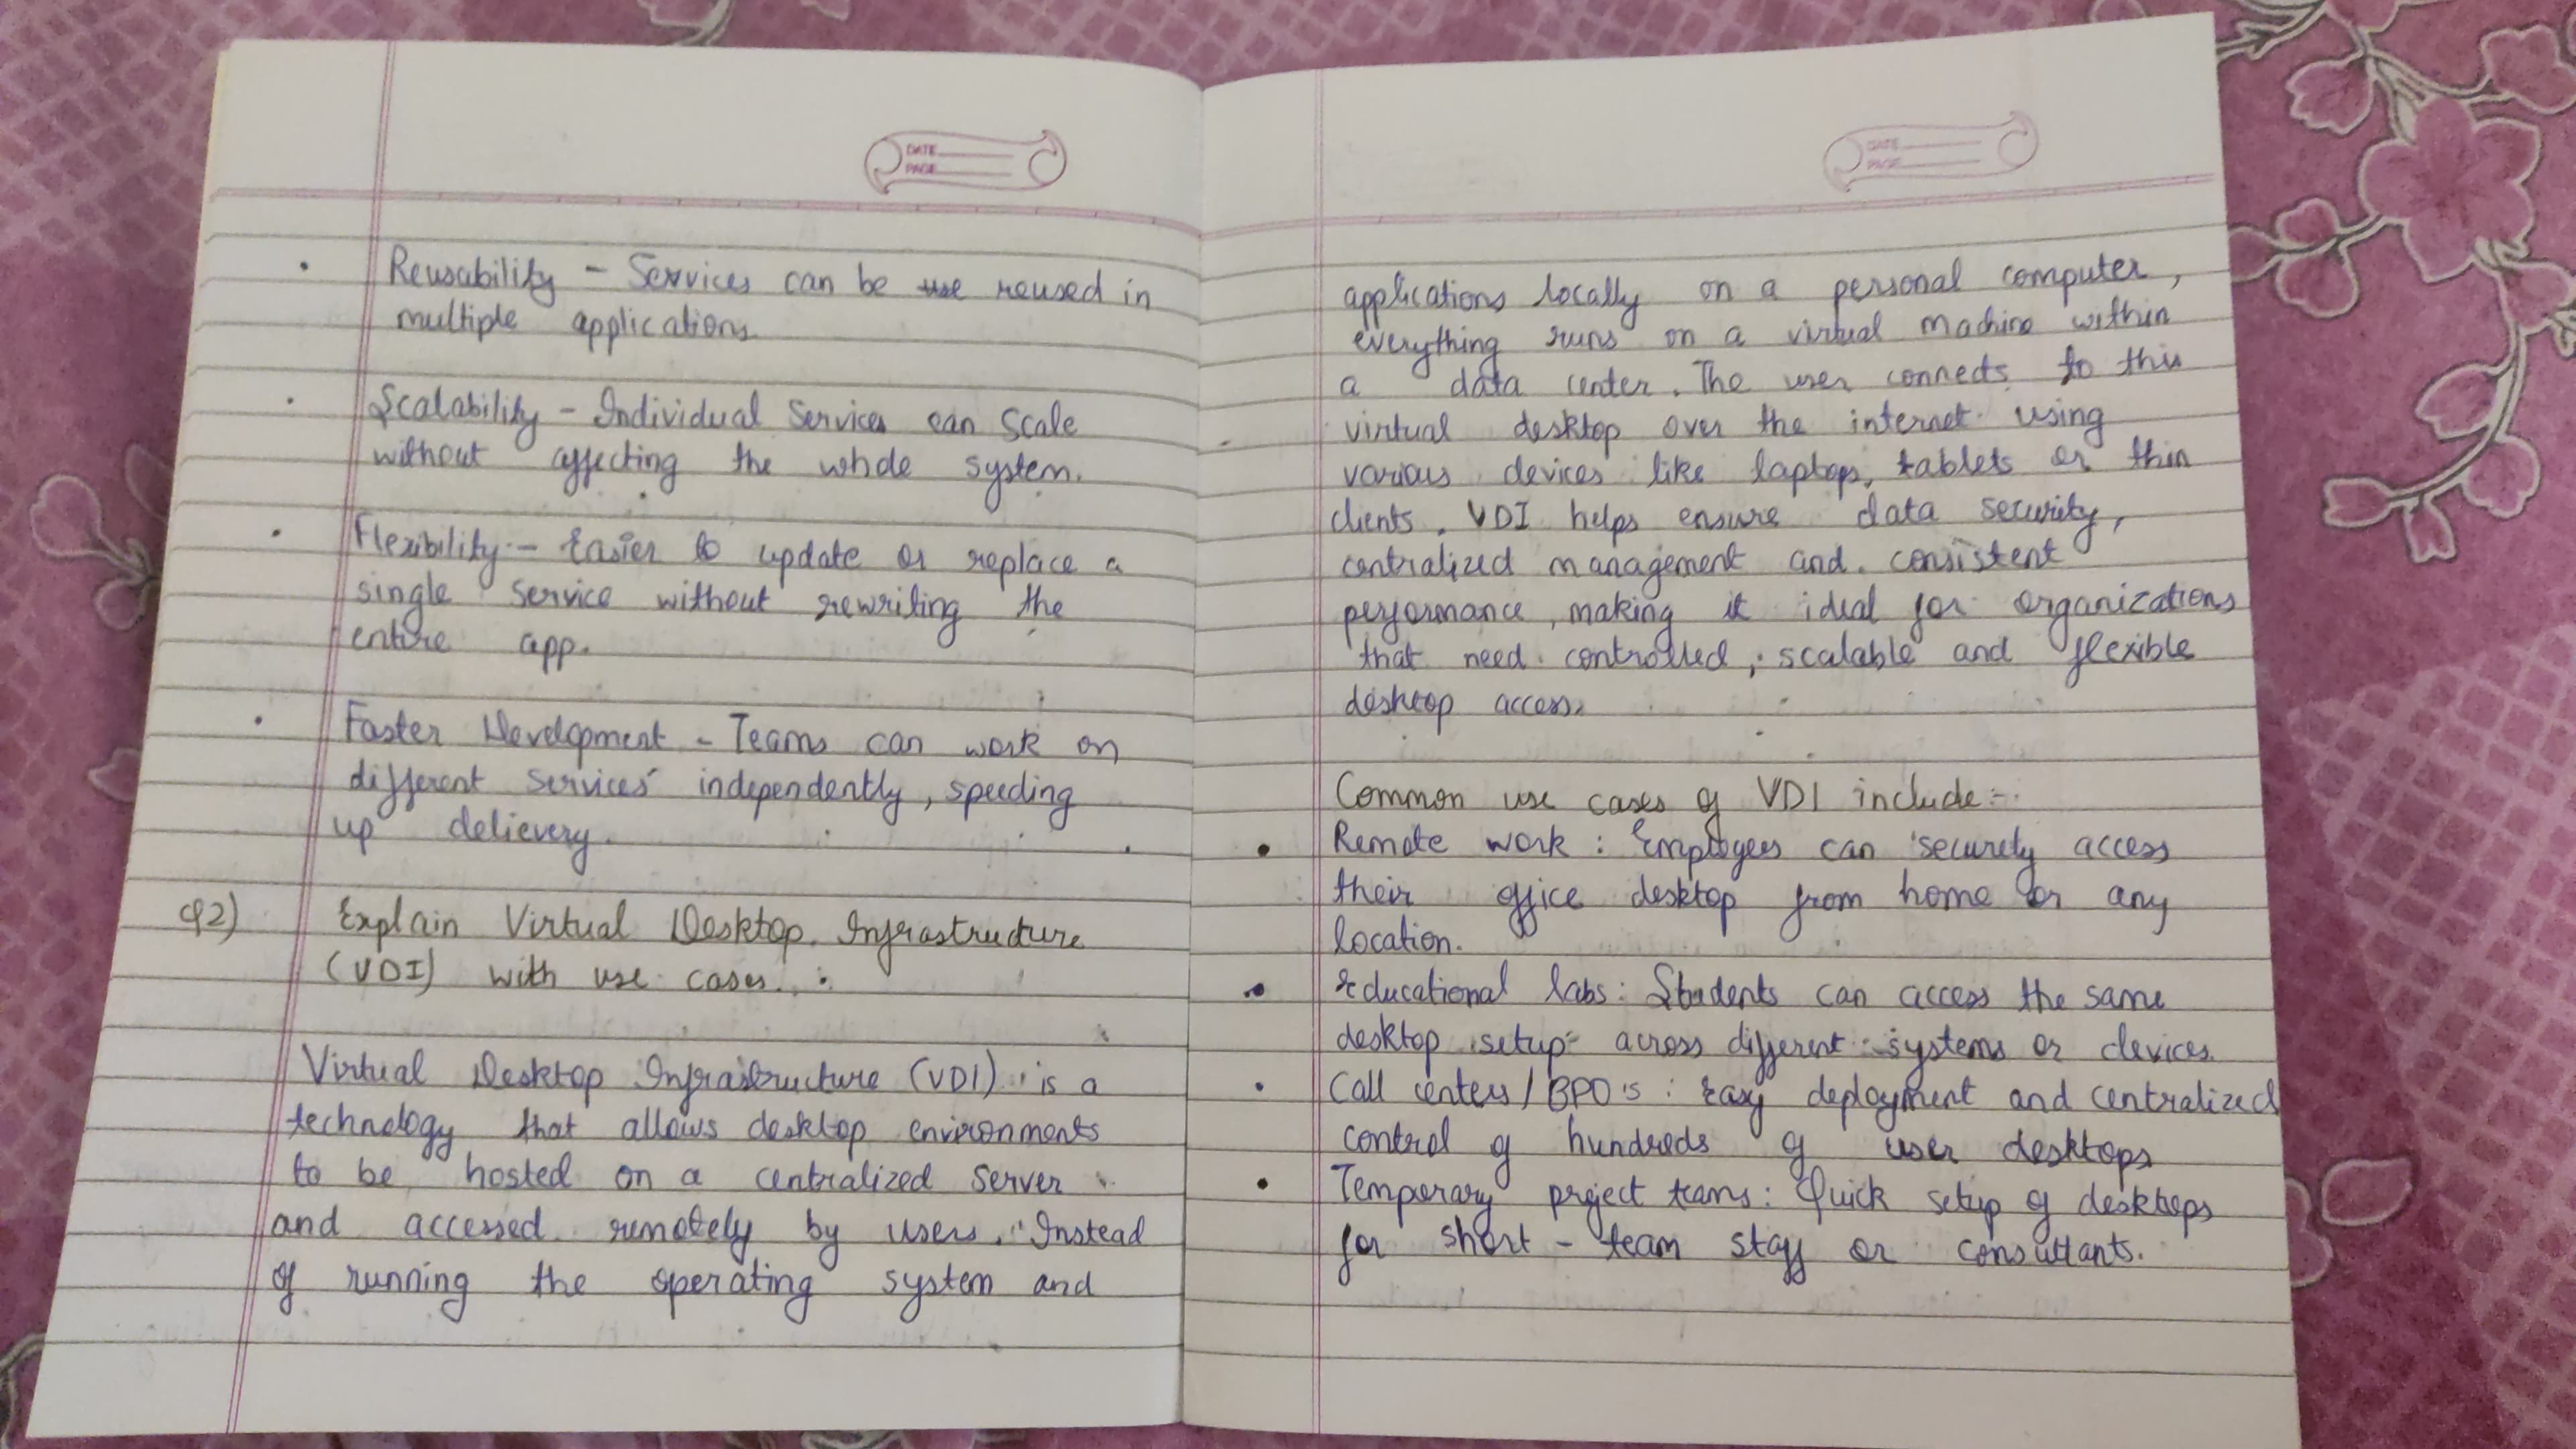 DATE
PAGE
• Reusability - Services can be use reused in
multiple applications.
• Scalability - Individual Services can Scale
without affecting the whole system.
• Flexibility - Easier to update or replace a
single service without rewriting the
entire app.
• Faster Development - Teams can work on
different services independently, speeding
up delievery.
Q2) Explain Virtual Desktop Infrastructure
(VDI) with use cases.
Virtual Desktop Infrastructure (VDI) is a
technology that allows desktop environments
to be hosted on a centralized server
and accessed remotely by users. Instead
of running the operating system and
DATE
PAGE
applications locally on a personal computer,
everything runs on a virtual machine within
a data center. The user connects to this
virtual desktop over the internet using
various devices like laptops, tablets or thin
clients. VDI helps ensure data security,
centralized management and consistent
performance, making it ideal for organizations
that need controlled, scalable and flexible
desktop access.
Common use cases of VDI include:-
• Remote work : Employees can securely access
their office desktop from home or any
location.
• Educational labs: Students can access the same
desktop setup across different systems or devices.
• Call centers/BPO's : Easy deployment and centralized
control of hundreds of user desktops
• Temporary project teams: Quick setup of desktops
for short - team staff or consultants.